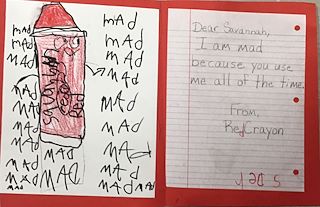 mAd
mAd
mAd
mAd
mAd
mAd
mAd
mAd
mAd
mAd
mAd
mAd
Savannah
Red
mAd
mAd
mAd
mAd
mAd
mAd
mAd
mAd
mAd
mAd
mAd
mAd
Dear Savannah,
I am mad
because you use
me all of the time.
From,
Red Crayon